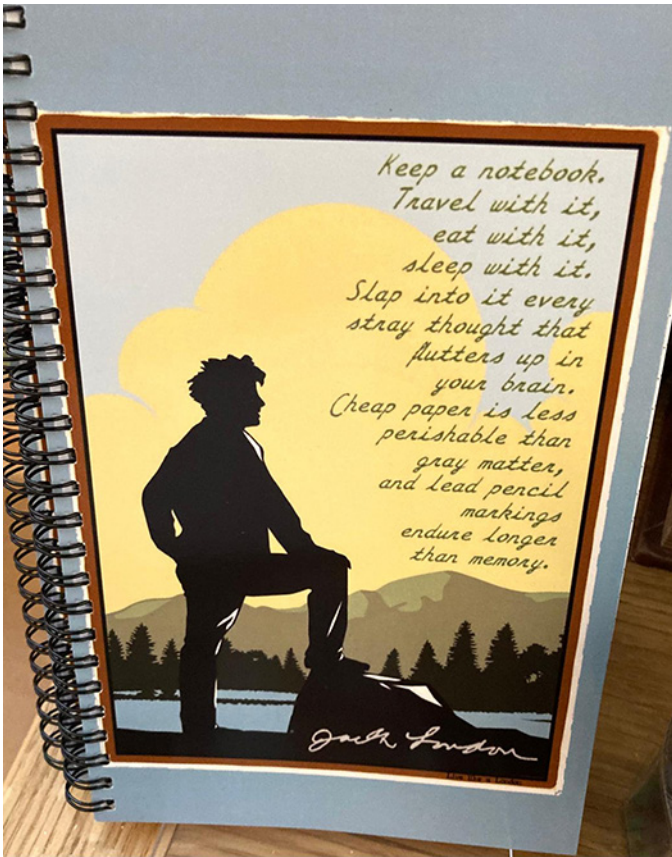 Keep a notebook.
Travel with it,
eat with it,
sleep with it.
Slap into it every
stray thought that
flutters up in
your brain.
Cheap paper is less
perishable than
gray matter,
and lead pencil
markings
endure longer
than memory.
Jack London